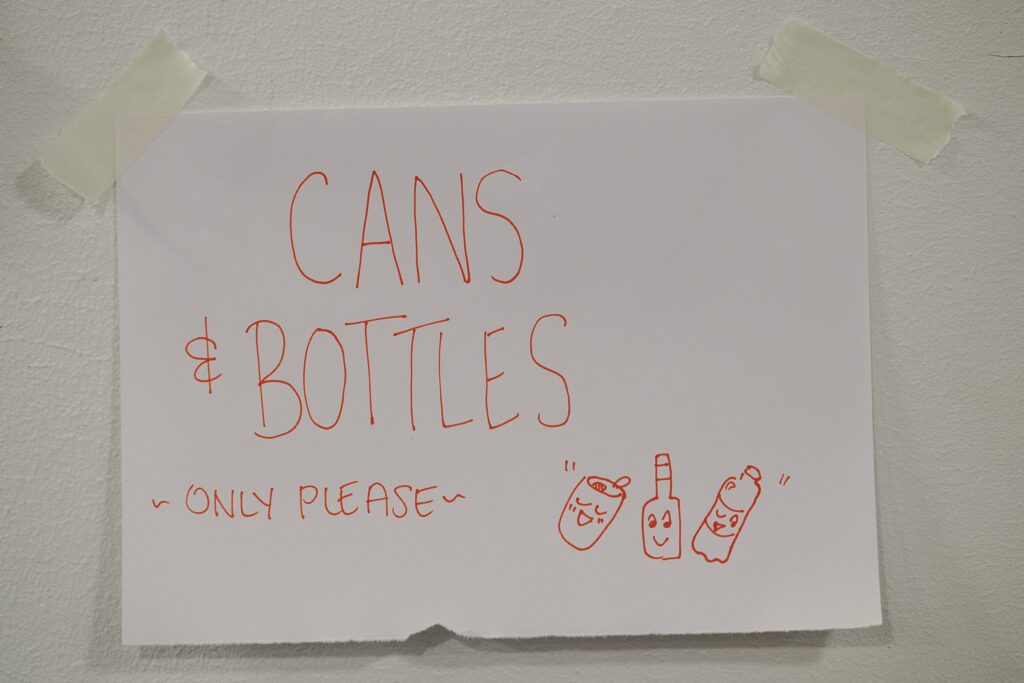 CANS
& BOTTLES
~ ONLY PLEASE ~